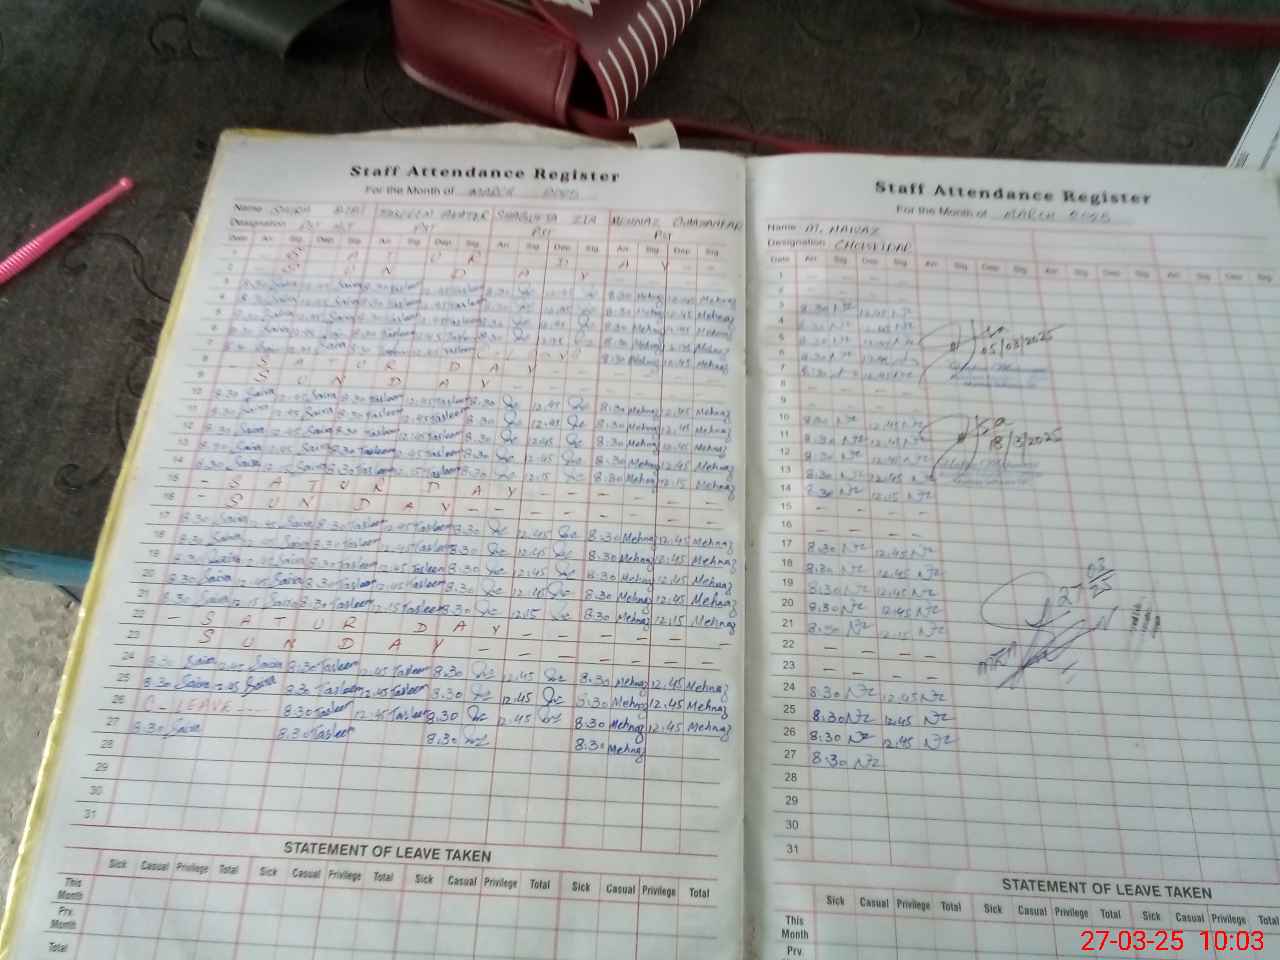 Staff Attendance Register
For the Month of MARCH 2025
Name SAIRA BIBI TASLEEM AKHTER SHAGUFTA ZIA MEHNAZ
Designation PST PST PST
Date Arr Sig Dep Sig Arr Sig Dep Sig Arr Sig Dep Sig Arr Sig Dep Sig
1 S A T U R D A Y - -
2 S U N D A Y - -
3 8.30 Saira 12.45 Saira 8.30 Tasleem 12.45 Tasleem 8.30 12.45 8.30 Mehnaz 12.45 Mehnaz
4 8.30 Saira 12.45 Saira 8.30 Tasleem 12.45 Tasleem 8.30 12.45 8.30 Mehnaz 12.45 Mehnaz
5 8.30 Saira 12.45 Saira 8.30 Tasleem 12.45 Tasleem 8.30 12.45 8.30 Mehnaz 12.45 Mehnaz
6 8.30 Saira 12.45 Saira 8.30 Tasleem 12.45 Tasleem 8.30 12.45 8.30 Mehnaz 12.45 Mehnaz
7 8.30 Saira Saira 8.30 Tasleem 8.30 Mehnaz 12.45 Mehnaz
8 - S A T U R D A Y - - - - -
9 - S U N D A Y - - - - - -
10 8.30 Saira 12.45 Saira 8.30 Tasleem 12.45 Tasleem 8.30 12.45 8.30 Mehnaz 12.45 Mehnaz
11 8.30 Saira 12.45 Saira 8.30 Tasleem 12.45 Tasleem 8.30 12.45 8.30 Mehnaz 12.45 Mehnaz
12 8.30 Saira 12.45 Saira 8.30 Tasleem 12.45 Tasleem 8.30 12.45 8.30 Mehnaz 12.45 Mehnaz
13 8.30 Saira 12.45 Saira 8.30 Tasleem 12.45 Tasleem 8.30 12.45 8.30 Mehnaz 12.45 Mehnaz
14 8.30 Saira 12.15 Saira 8.30 Tasleem 12.15 Tasleem 8.30 12.15 8.30 Mehnaz 12.15 Mehnaz
15 - S A T U R D A Y - - - - - -
16 - S U N D A Y - - - - - - -
17 8.30 Saira 12.45 Saira 8.30 Tasleem 12.45 Tasleem 8.30 12.45 8.30 Mehnaz 12.45 Mehnaz
18 8.30 Saira 12.45 Saira 8.30 Tasleem 12.45 Tasleem 8.30 12.45 8.30 Mehnaz 12.45 Mehnaz
19 8.30 Saira 12.45 Saira 8.30 Tasleem 12.45 Tasleem 8.30 12.45 8.30 Mehnaz 12.45 Mehnaz
20 8.30 Saira 12.45 Saira 8.30 Tasleem 12.45 Tasleem 8.30 12.45 8.30 Mehnaz 12.45 Mehnaz
21 8.30 Saira 12.15 Saira 8.30 Tasleem 12.15 Tasleem 8.30 12.15 8.30 Mehnaz 12.15 Mehnaz
22 - S A T U R D A Y - - - - - -
23 S U N D A Y - - - - - - -
24 8.30 Saira 12.45 Saira 8.30 Tasleem 12.45 Tasleem 8.30 12.45 8.30 Mehnaz 12.45 Mehnaz
25 8.30 Saira 12.45 Saira 8.30 Tasleem 12.45 Tasleem 8.30 12.45 8.30 Mehnaz 12.45 Mehnaz
26 C - LEAVE - - - 8.30 Tasleem 12.45 Tasleem 8.30 12.45 8.30 Mehnaz 12.45 Mehnaz
27 8.30 Saira 8.30 Tasleem 8.30 8.30 Mehnaz
28
29
30
31
STATEMENT OF LEAVE TAKEN
Sick Casual Privilege Total Sick Casual Privilege Total Sick Casual Privilege Total Sick Casual Privilege Total
This Month
Prv. Month
Total
Staff Attendance Register
For the Month of MARCH 2025
Name M. NAWAZ
Designation CHOWKIDAR
Date Arr Sig Dep Sig Arr Sig Dep Sig Arr Sig Dep Sig Arr Sig Dep Sig
1 - - - -
2 - - - -
3 8.30 Nz 12.45 Nz
4 8.30 Nz 12.45 Nz
5 8.30 Nz 12.45 Nz 05/03/2025
6 8.30 Nz 12.45 Nz
7 8.30 Nz 12.45 Nz
8 - - - -
9 - - - -
10 8.30 Nz 12.45 Nz
11 8.30 Nz 12.45 Nz 13/3/2025
12 8.30 Nz 12.45 Nz
13 8.30 Nz 12.45 Nz
14 8.30 Nz 12.15 Nz
15 - - - -
16 - - - -
17 8.30 Nz 12.45 Nz
18 8.30 Nz 12.45 Nz
19 8.30 Nz 12.45 Nz
20 8.30 Nz 12.45 Nz
21 8.30 Nz 12.15 Nz
22 - - - -
23 - - - -
24 8.30 Nz 12.45 Nz
25 8.30 Nz 12.45 Nz
26 8.30 Nz 12.45 Nz
27 8.30 Nz
28
29
30
31
STATEMENT OF LEAVE TAKEN
Sick Casual Privilege Total Sick Casual Privilege Total Sick Casual Privilege Total
This Month
Prv.
27-03-25 10:03